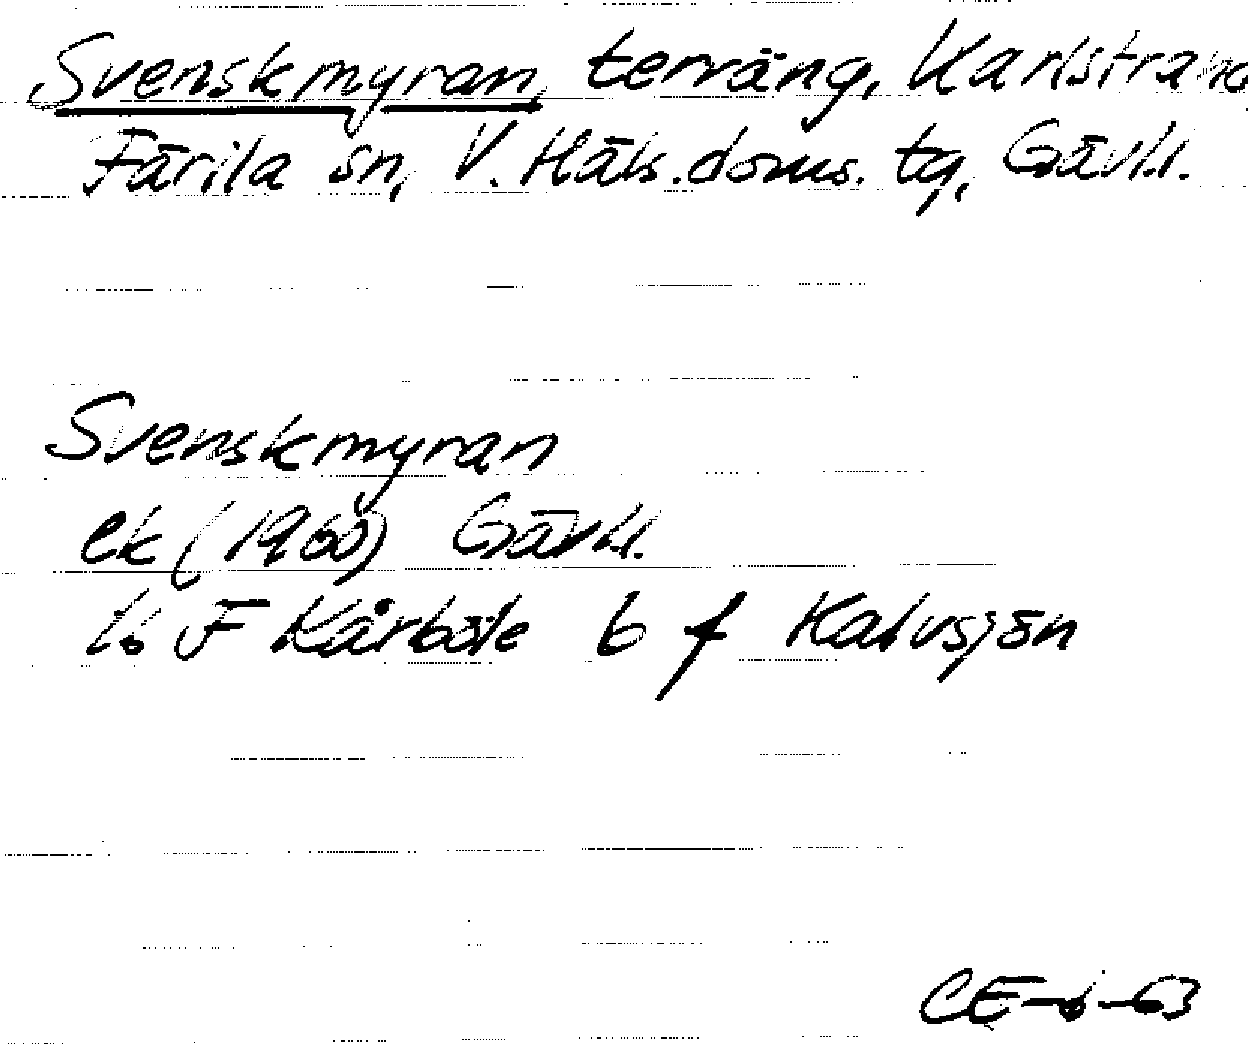 Svenskmyran, terräng, Karlstrand
Färila sn, V. Häls. doms. tg, Gävl.l.
Svenskmyran
ek (1960) Gävl.l.
16 F Kårböle b f Kalvsjön
CE-6-63